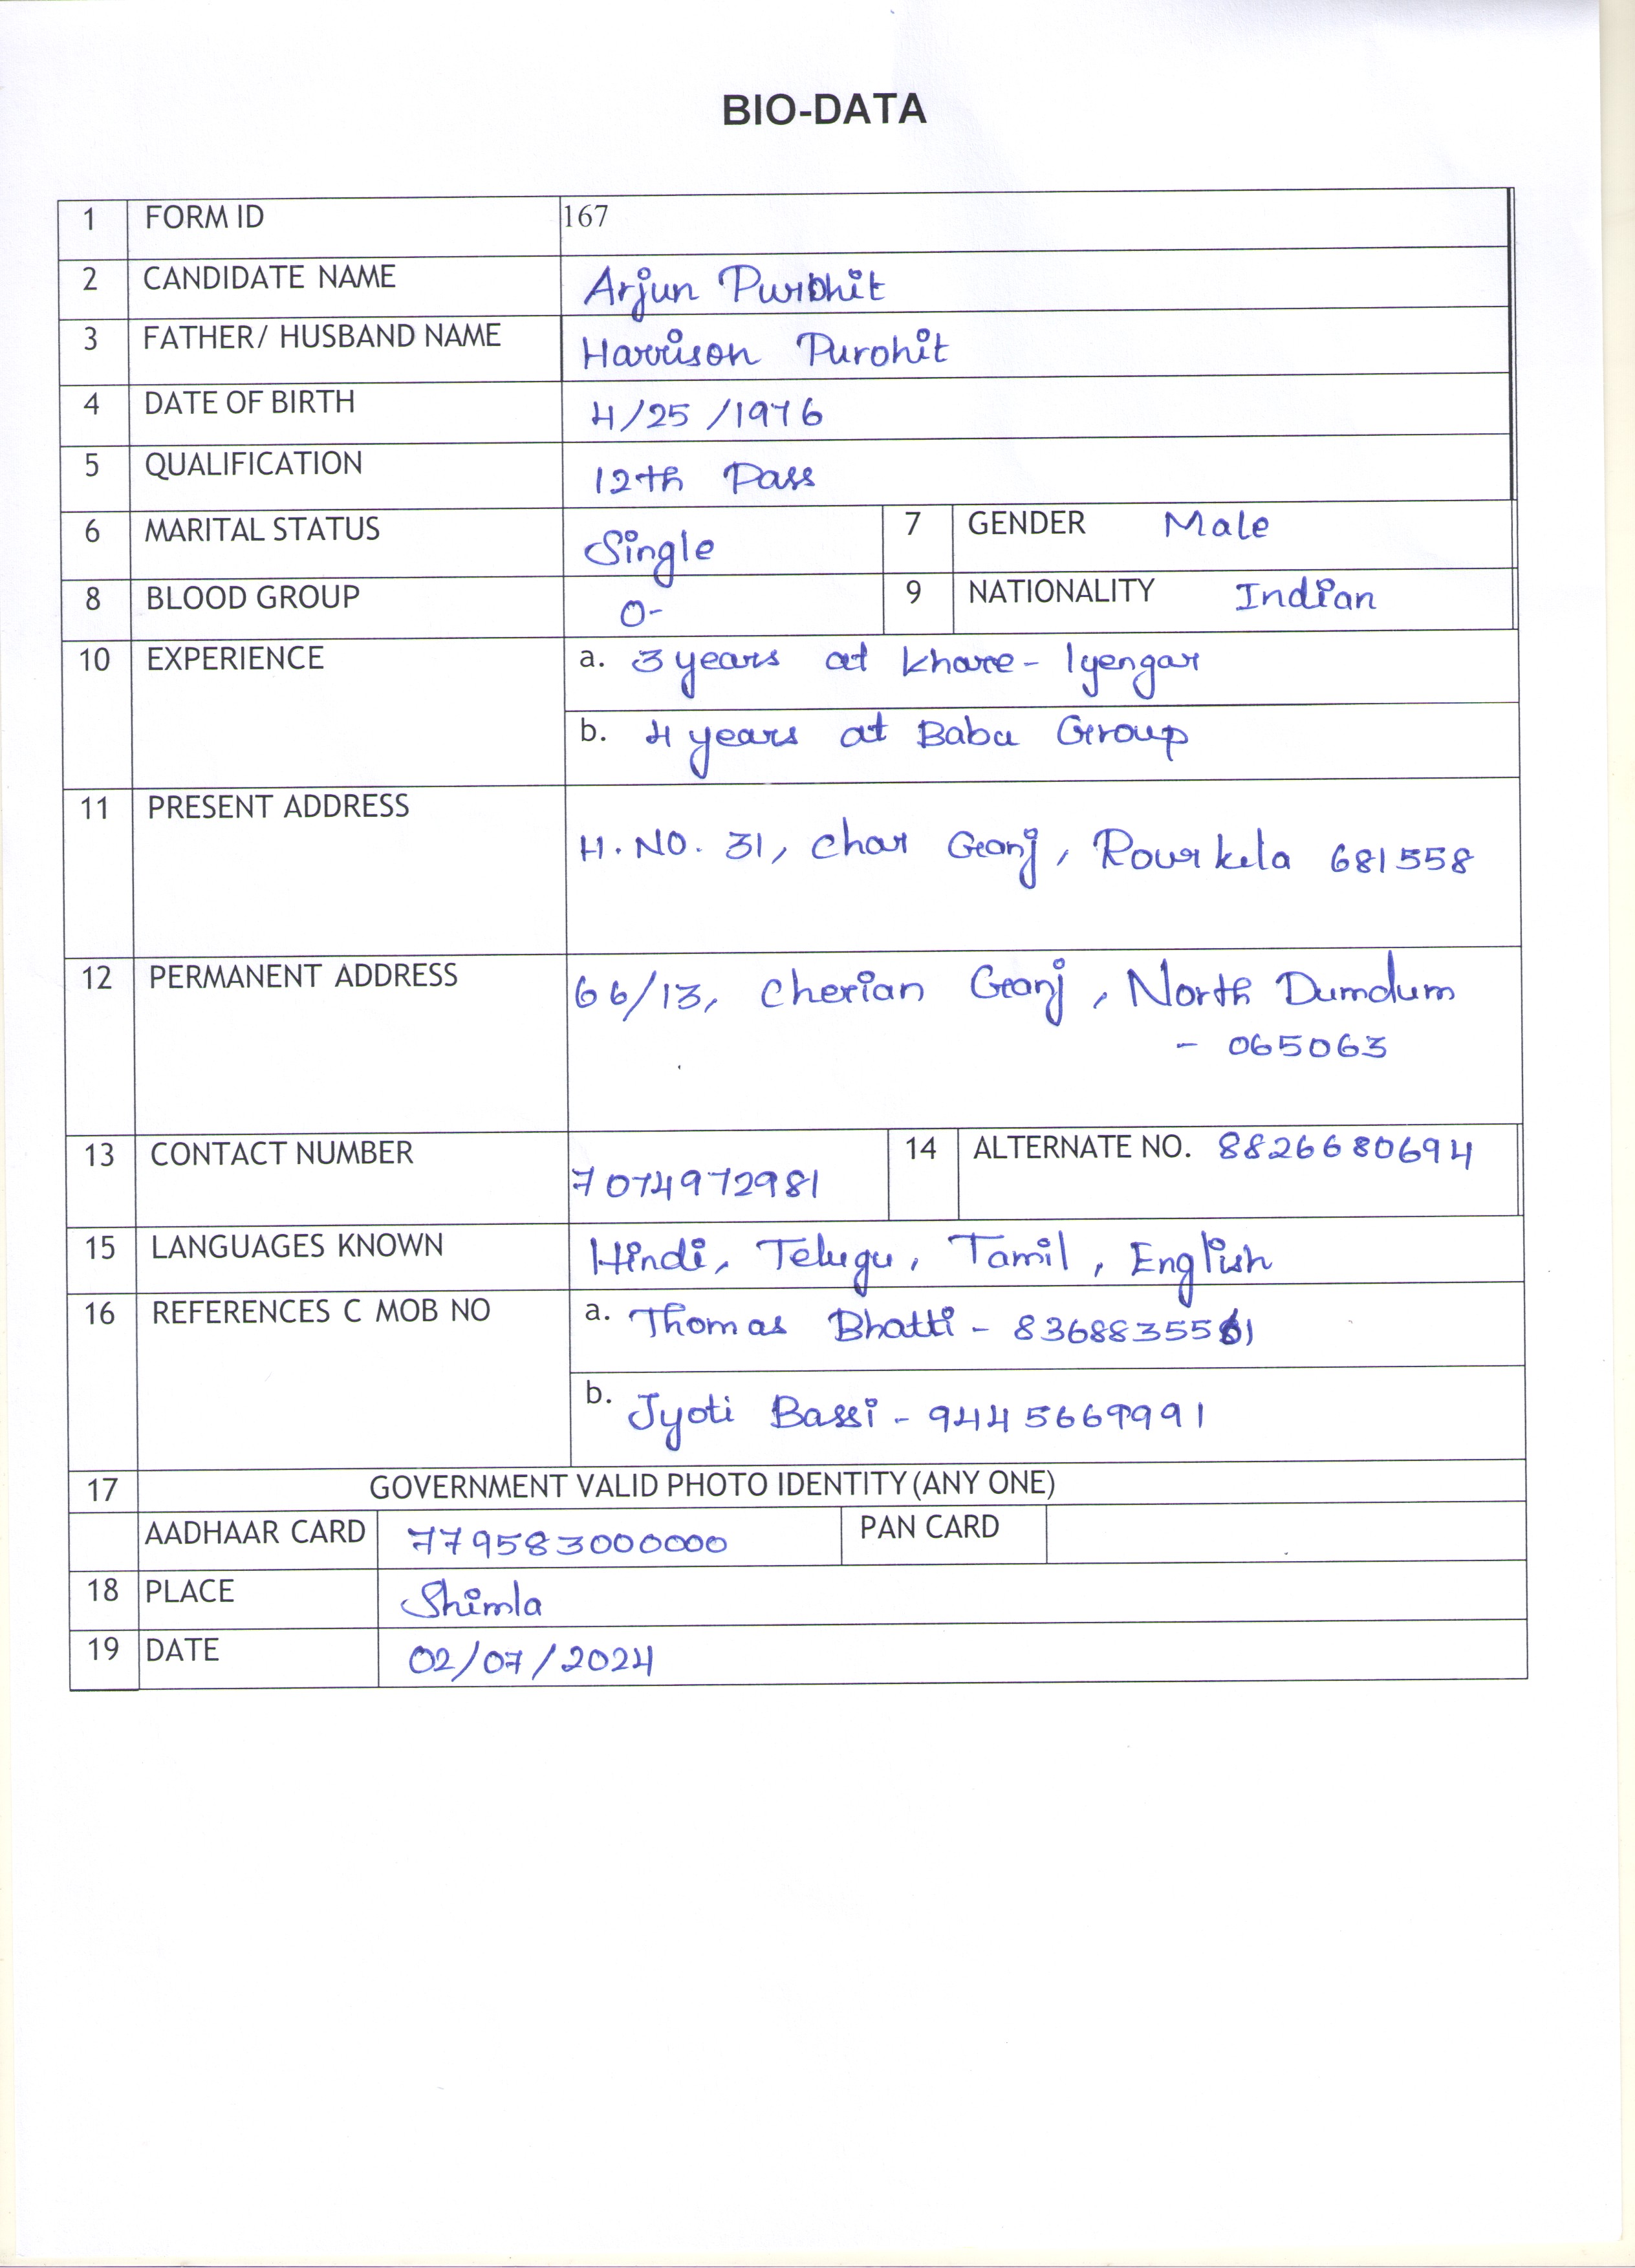 BIO-DATA
1 FORM ID 167
2 CANDIDATE NAME Arjun Purohit
3 FATHER/ HUSBAND NAME Harrison Purohit
4 DATE OF BIRTH 4/25/1976
5 QUALIFICATION 12th Pass
6 MARITAL STATUS Single 7 GENDER Male
8 BLOOD GROUP O- 9 NATIONALITY Indian
10 EXPERIENCE a. 3 years at Khare-Iyengar
b. 4 years at Babu Group
11 PRESENT ADDRESS H.NO. 31, Char Ganj, Rourkela 681558
12 PERMANENT ADDRESS 66/13, Cherian Ganj, North Dumdum
- 065063
13 CONTACT NUMBER 7074972981 14 ALTERNATE NO. 8826680694
15 LANGUAGES KNOWN Hindi, Telugu, Tamil, English
16 REFERENCES C MOB NO a. Thomas Bhatti - 8368835561
b. Jyoti Bassi - 9445669991
17 GOVERNMENT VALID PHOTO IDENTITY (ANY ONE)
AADHAAR CARD 779583000000 PAN CARD
18 PLACE Shimla
19 DATE 02/07/2024